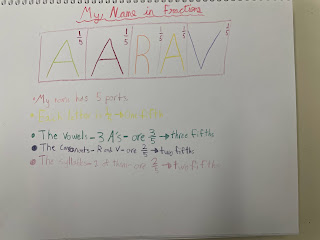 My Name in Fractions
A 1/5 A 1/5 R 1/5 A 1/5 V 1/5
• My name has 5 parts
• Each letter is 1/5 → one fifth
• The Vowels - 3 A's - are 3/5 → three fifths
• The consonants - R and V - are 2/5 → two fifths
• The syllables - 2 of them - are 2/5 → two fifths